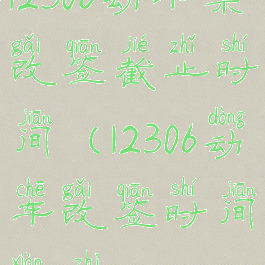 12306动
gǎi qiān jié zhǐ shí
改签截止时
jiān dòng
间 （12306动
chē gǎi qiān shí jiān
车改签时间
xiàn zhì